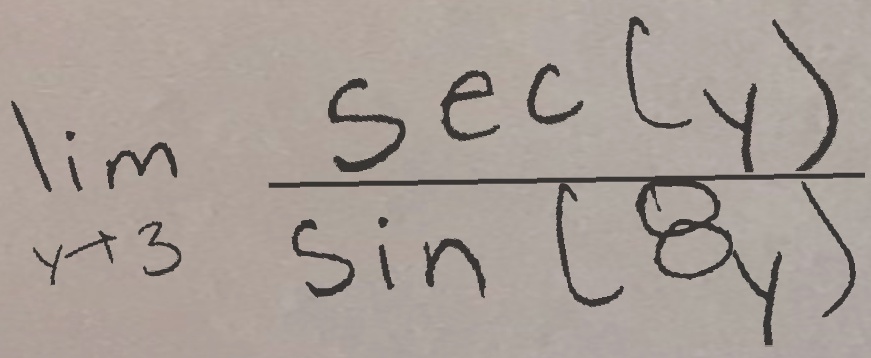 lim y→3 sec(y) / sin(8y)